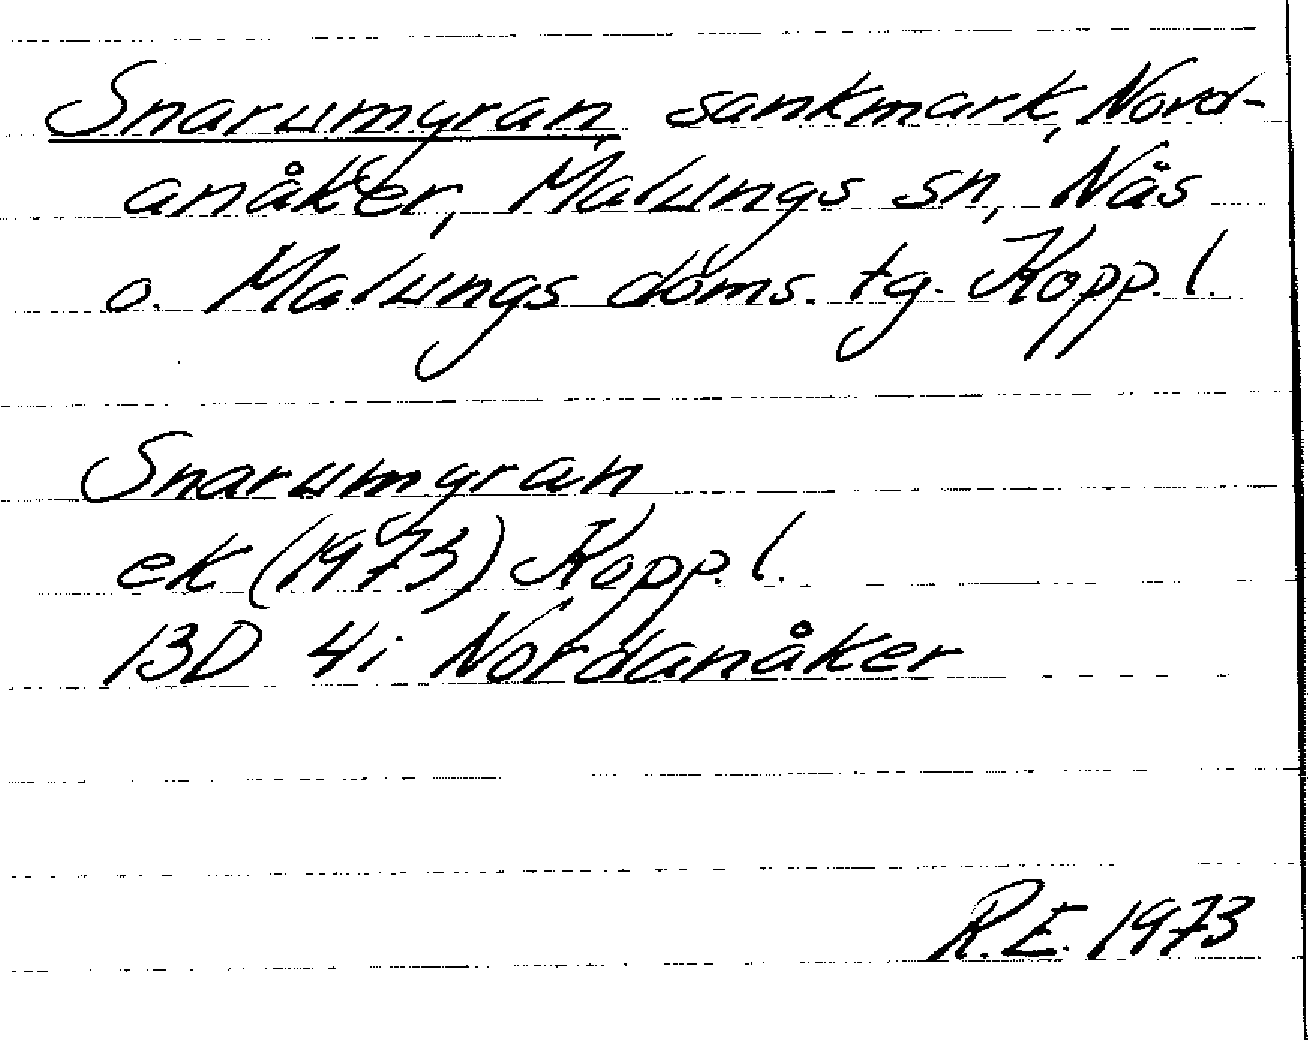 Snarumgran, sankmark, Nord-
anåker, Malungs sn, Nås
o. Malungs doms. tg. Kopp. l.
Snarumgran
ek (1973) Kopp. l.
13D 4i Nordanåker
R.E. 1973